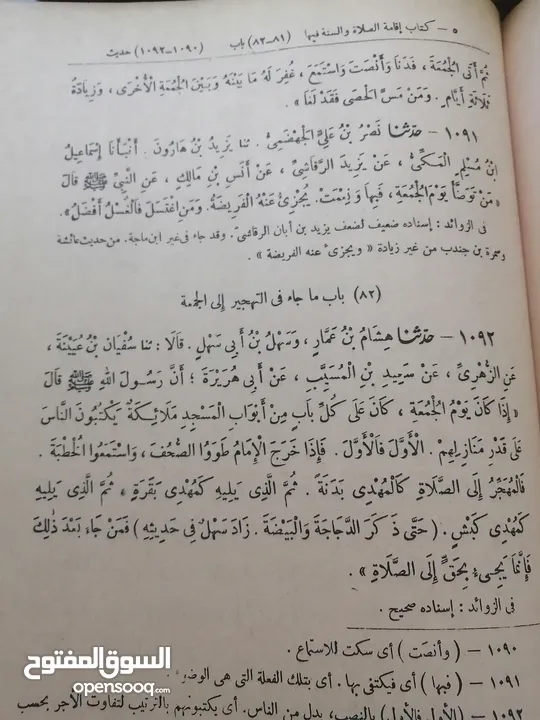 ٥ – كتاب إقامة الصلاة والسنة فيها (٨١–٨٢) باب (١٠٩٠–١٠٩٢) حديث
ثُمَّ أَتَى الْجُمُعَةَ ، فَدَنَا وَأَنْصَتَ وَاسْتَمَعَ ، غُفِرَ لَهُ مَا بَيْنَهُ وَبَيْنَ الْجُمُعَةِ الْأُخْرَى ، وَزِيَادَةُ
ثَلَاثَةِ أَيَّامٍ . وَمَنْ مَسَّ الْحَصَى فَقَدْ لَغَا » .
١٠٩١ – حدّثنا نَصْرُ بْنُ عَلِيٍّ الْجَهْضَمِيُّ . ثنا يَزِيدُ بْنُ هَارُونَ . أَنْبَأَنَا إِسْمَاعِيلُ
ابْنُ مُسْلِمٍ الْمَكِّيُّ ، عَنْ يَزِيدَ الرَّقَاشِيِّ ، عَنْ أَنَسِ بْنِ مَالِكٍ ، عَنِ النَّبِيِّ ﷺ قَالَ
« مَنْ تَوَضَّأَ يَوْمَ الْجُمُعَةِ ، فَبِهَا وَنِعْمَتْ . يُجْزِئُ عَنْهُ الْفَرِيضَةُ . وَمَنِ اغْتَسَلَ فَالْغُسْلُ أَفْضَلُ » .
فى الزوائد : إسناده ضعيف لضعف يزيد بن أبان الرقاشىّ . وقد جاء فى غير ابن ماجة . من حديث عائشة
وسمرة بن جندب من غير زيادة « ويجزىء عنه الفريضة » .
(٨٢) باب ما جاء فى التهجير إلى الجمعة
١٠٩٢ – حدّثنا هِشَامُ بْنُ عَمَّارٍ ، وَسَهْلُ بْنُ أَبِى سَهْلٍ . قَالَا : ثنا سُفْيَان بْنُ عُيَيْنَةَ ،
عَنِ الزُّهْرِىِّ ، عَنْ سَعِيدِ بْنِ الْمُسَيَّبِ ، عَنْ أَبِى هُرَيْرَةَ ؛ أَنَّ رَسُولَ اللهِ ﷺ قَالَ
« إِذَا كَانَ يَوْمُ الْجُمُعَةِ ، كَانَ عَلَى كُلِّ بَابٍ مِنْ أَبْوَابِ الْمَسْجِدِ مَلَائِكَةٌ يَكْتُبُونَ النَّاسَ
عَلَى قَدْرِ مَنَازِلِهِمْ . الْأَوَّلَ فَالْأَوَّلَ . فَإِذَا خَرَجَ الْإِمَامُ طَوَوُا الصُّحُفَ ، وَاسْتَمَعُوا الْخُطْبَةَ .
فَالْمُهَجِّرُ إِلَى الصَّلَاةِ كَالْمُهْدِى بَدَنَةً . ثُمَّ الَّذِى يَلِيهِ كَمُهْدِى بَقَرَةٍ ، ثُمَّ الَّذِى يَلِيهِ
كَمُهْدِى كَبْشٍ . ( حَتَّى ذَكَرَ الدَّجَاجَةَ وَالْبَيْضَةَ . زَادَ سَهْلٌ فِى حَدِيثِهِ ) فَمَنْ جَاءَ بَعْدَ ذٰلِكَ
فَإِنَّمَا يَجِىءُ بِحَقٍّ إِلَى الصَّلَاةِ » .
فى الزوائد : إسناده صحيح .
١٠٩٠ – ( وأنصت ) أى سكت للاستماع .
١٠٩١ – ( فبها ) أى فيكتفى بها . أى بتلك الفعلة التى هى الوضوء
١٠٩٢ – ( الأول فالأول ) بالنصب ، بدل من الناس . أى يكتبونهم بالترتيب لتفاوت الأجر بحسب
السوق المفتوح
opensooq.com